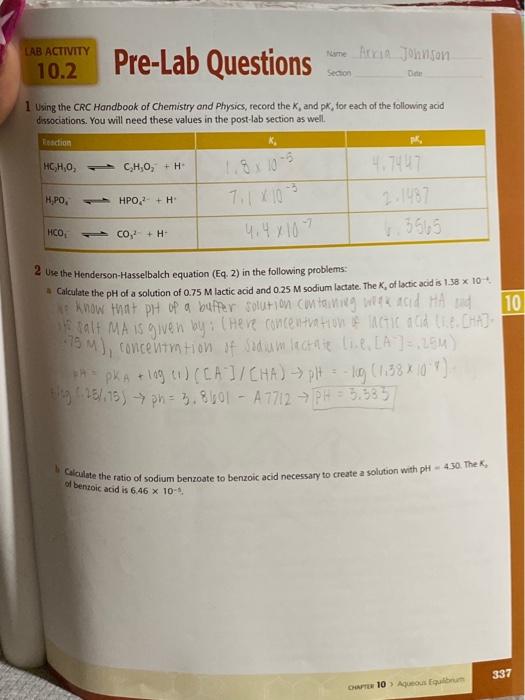 LAB ACTIVITY
10.2
Pre-Lab Questions
Name Arria Johnson
Section Date
1 Using the CRC Handbook of Chemistry and Physics, record the Kₐ and pKₐ for each of the following acid
dissociations. You will need these values in the post-lab section as well.
Reaction Kₐ pKₐ
HC₂H₃O₂ ⇌ C₂H₃O₂⁻ + H⁺ 1.8 x 10⁻⁵ 4.7447
H₂PO₄⁻ ⇌ HPO₄²⁻ + H⁺ 7.1 x 10⁻³ 2.1487
HCO₃⁻ ⇌ CO₃²⁻ + H⁺ 4.4 x 10⁻⁷ 6.3565
2 Use the Henderson-Hasselbalch equation (Eq. 2) in the following problems:
a Calculate the pH of a solution of 0.75 M lactic acid and 0.25 M sodium lactate. The Kₐ of lactic acid is 1.38 × 10⁻⁴.
We know that pH of a buffer solution containing weak acid HA and
its salt MA is given by: (Here concentration of lactic acid (i.e. [HA]=
.75 M), concentration of sodium lactate (i.e. [A⁻]=.25M)
pH = pKA + log (1) ([A⁻]/[HA) → pH = -log (1.38 x 10⁻⁴)
+log (.25/.75) → ph = 3.8601 - .47712 → pH = 3.383
b Calculate the ratio of sodium benzoate to benzoic acid necessary to create a solution with pH = 4.30. The Kₐ
of benzoic acid is 6.46 × 10⁻⁵.
10
CHAPTER 10 > Aqueous Equilibrium
337